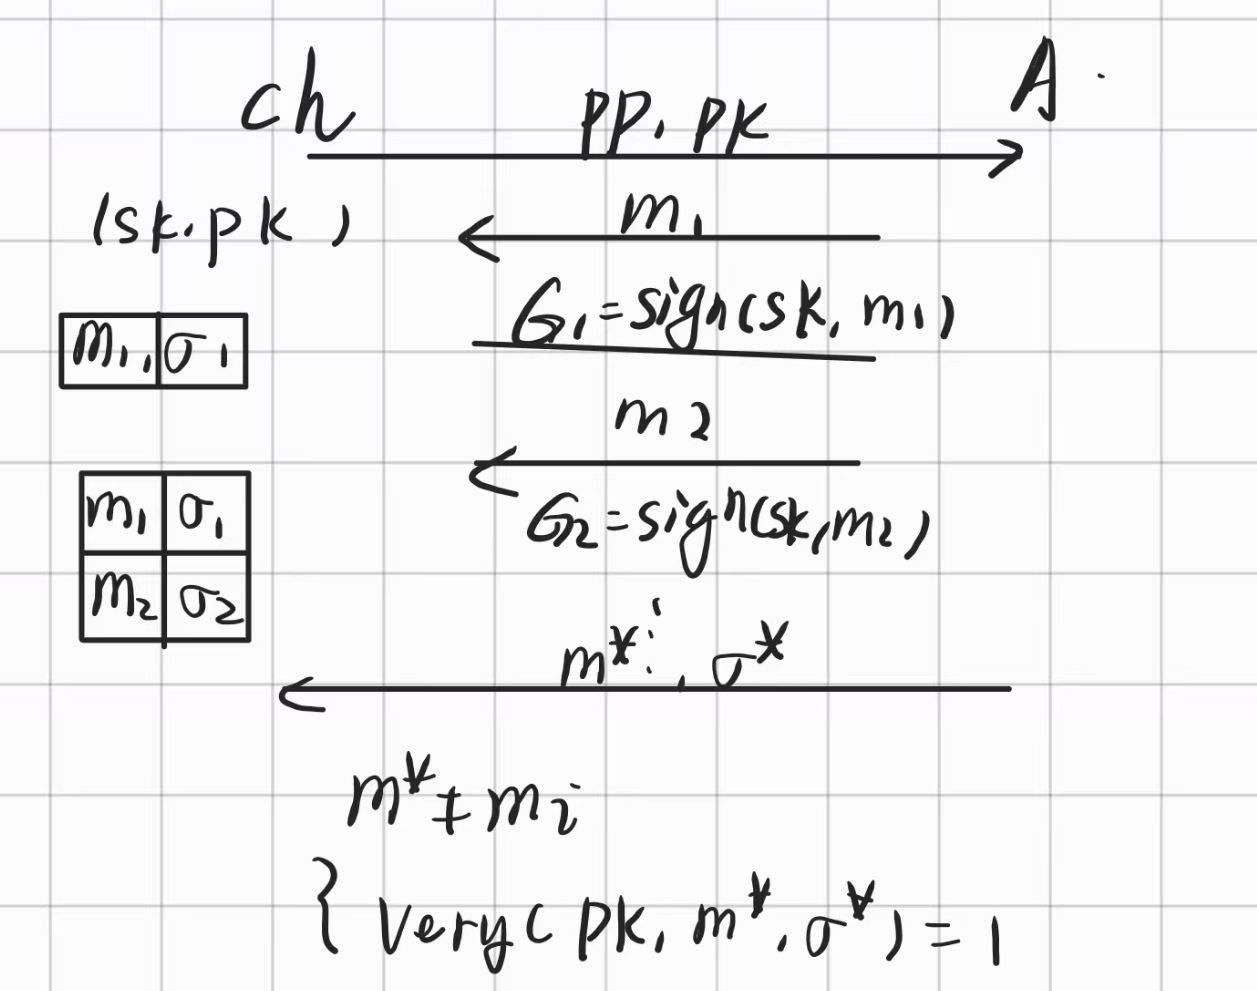 ch
A
pp, pk
(sk, pk)
m₁
σ₁=sign(sk, m₁)
m₁, σ₁
m₂
m₁ σ₁
σ₂=sign(sk, m₂)
m₂ σ₂
⋮
m*, σ*
m* ≠ mᵢ
{ Very( pk, m*, σ*) = 1